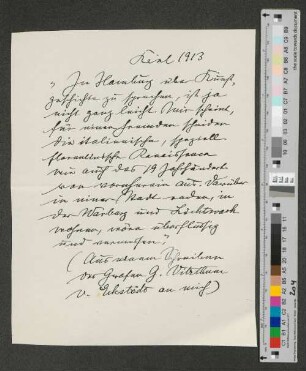 Kiel 1913
"In Hamburg über Kunst-
geschichte zu sprechen, ist ja
nicht ganz leicht. Mir scheint,
für einen Fremden scheiden
die italienische, speziell
florentinische Renaissance
wie auch das 19 Jahrhundert
von vornherein aus. Darüber
in einer Stadt reden, in
der Warburg und Lichtwark
wohnen, wäre überflüssig
und vermessen."
(Aus einem Schreiben
des Grafen G. Vitzthum
v. Eckstädt an mich)